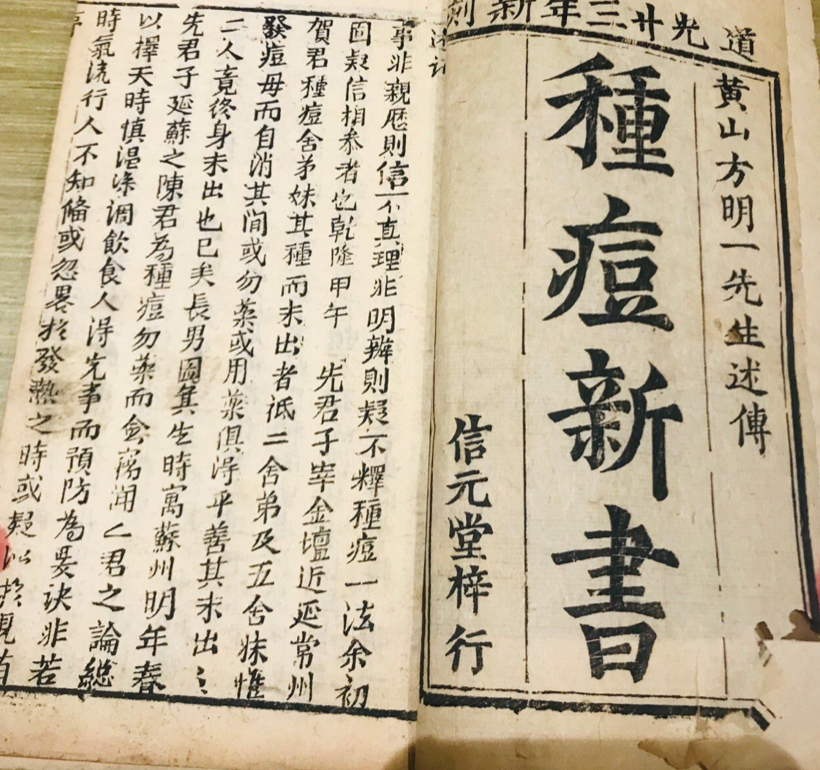 道光廿三年新刻
黄山方明一先生述傳
種痘新書
信元堂梓行
事非親歷則信不真理非明辨則疑不釋種痘一法余初
固疑信相參者也乾隆甲午先君子宰金壇近延常州
賀君種痘舍弟妹其種而未出者祗二舍弟及五舍妹惟
發痘毋而自消其間或勿藥或用藥俱得平善其未出之
二人竟終身未出也已矣長男圓其生時寓蘇州明年春
先君子延蘇之陳君為種痘勿藥而僉竊聞乙君之論總
以擇天時慎温涼調飲食人得先事而預防為要訣非若
時氣流行人不知備或忽畧於發熱之時或疑似於